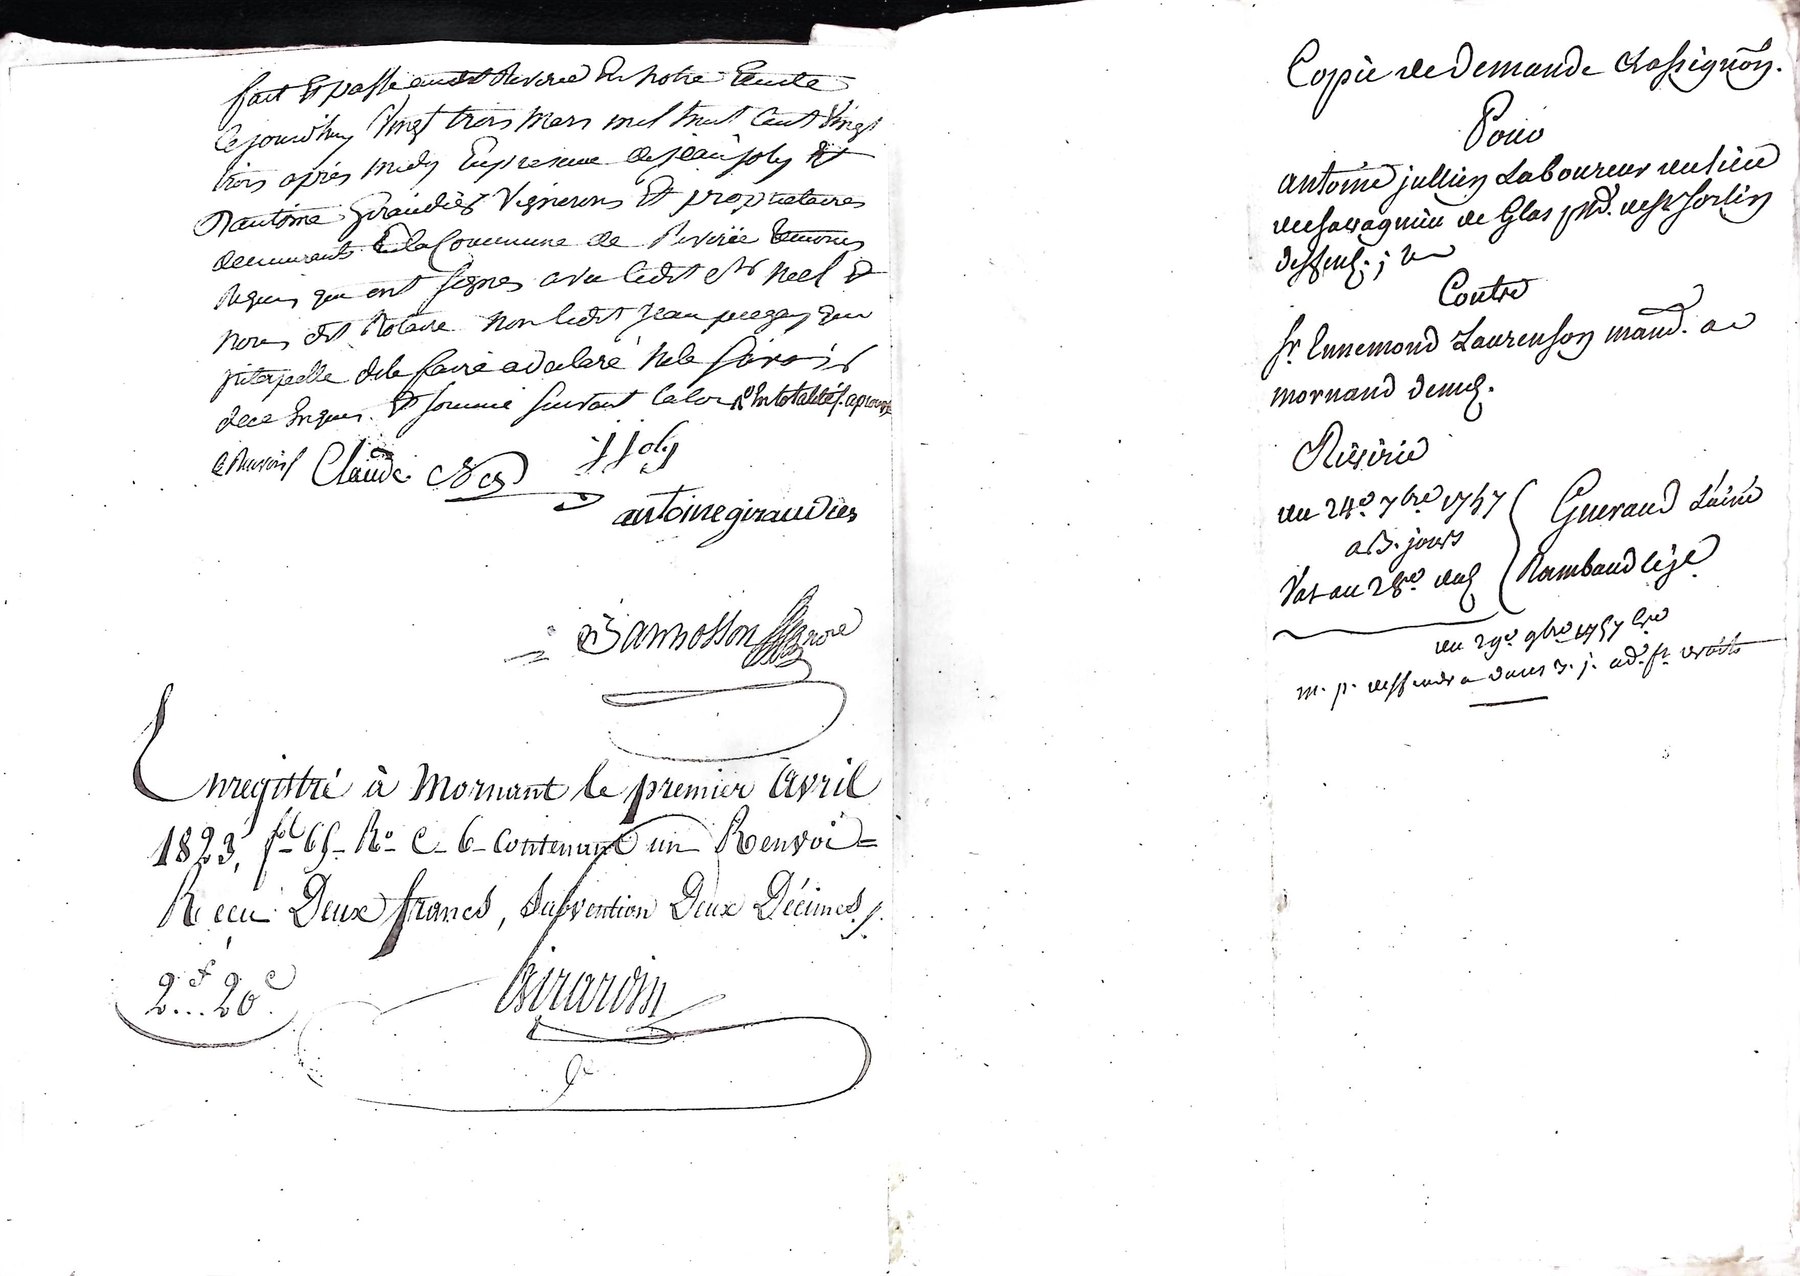 fait et passé audit Riverie en notre Etude
Cejourdhuy Vingt trois Mars mil huit Cent Vingt
trois après midy En presence de jean joly et
d'antoine Giraudier Vignerons Et propriétaires
demeurants En la Commune de Riverie temoins
Requis qui ont signés avec ledit Sr Neel et
nous dit Notaire non ledit Jean qui
interpellé de le faire a declaré ne le savoir
de ce Enquis Et sommé suivant la loi En totalité aprouvé
le Renvoi
Claude Neel
J Joly
antoine giraudier
nore
Enregistré à Mornant le premier Avril
1823, fol 65 Ro C 6 Contenant un Renvoi =
Recu Deux francs, Subvention Deux Décimes
2f.. 20c
Girardin
Copie de Demande d'assignon.
Pour
antoine jullien Laboureur du lieu
de Glas de St Sorlin
deffend.
Contre
Sr. Ennemond Laurenson mand. a
mornand demd.
Riverie
du 24e 7bre 1757
a 3. jours
Vat au 28e dud
Gueraud L'ainé
Rambaud
du 29e 9bre 1757
m. p. deffendra dans 3. j. ad. droits